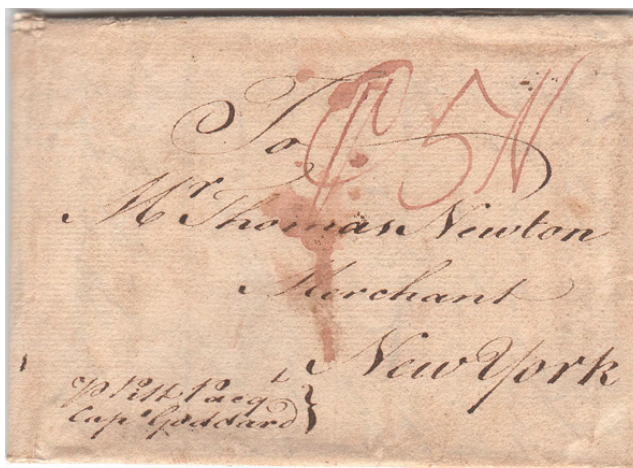 To
Mr Thomas Newton
Merchant
New York
Pitt Pacqt
Capt Goddard